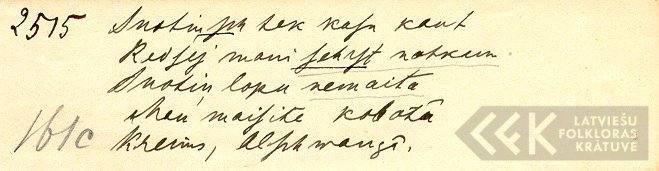 2515 Snotiņsch tek kasu kaut
Redsej mani sehrst nahkam
Snotiņ lopu nemaita
Man maisite kobotā
161c
Kreims,
LATVIEŠU
FOLKLORAS
KRĀTUVE